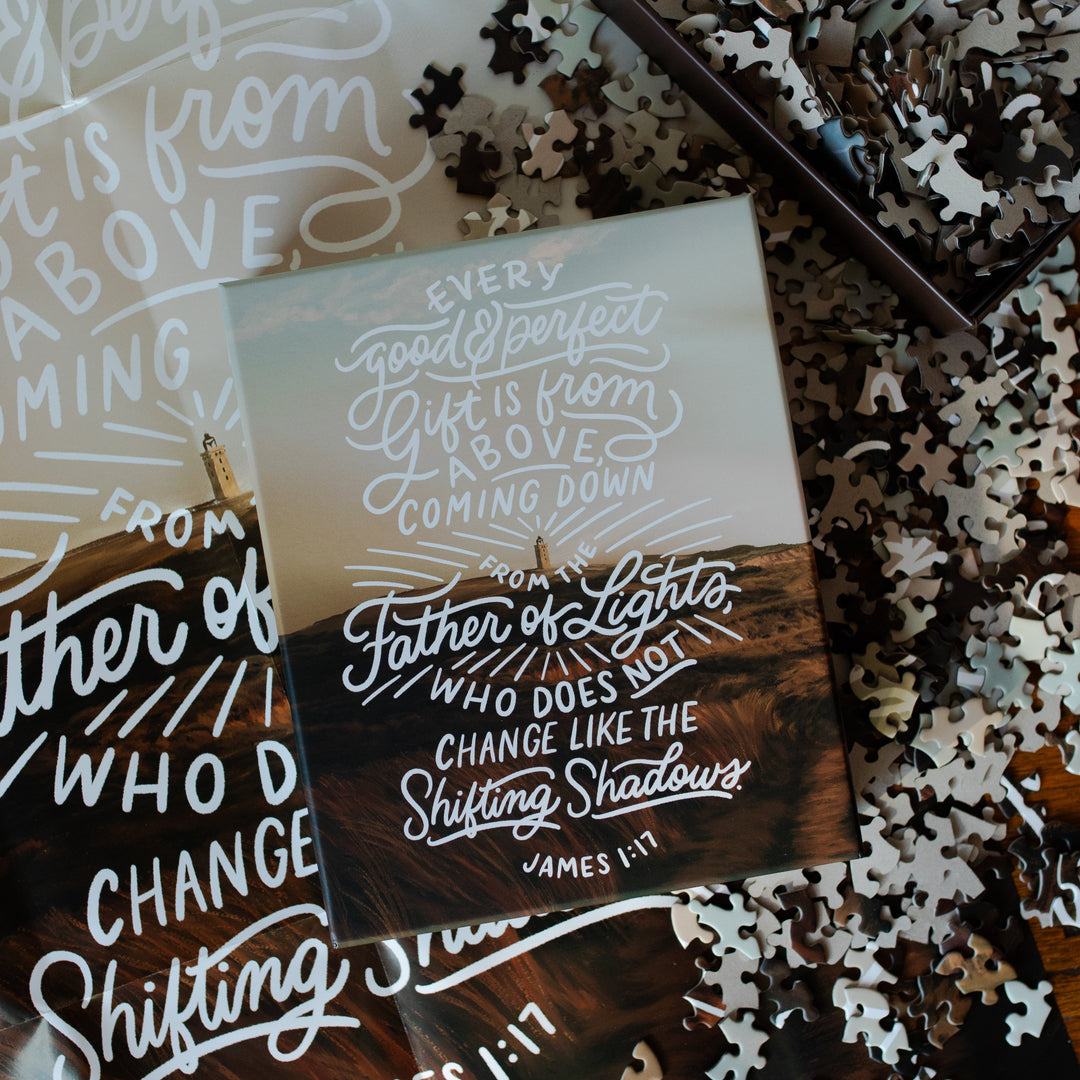 & perfe
t is from
ABOVE,
COMING
FROM
ther of
WHO D
CHANGE
Shifting Shad
ES 1:17
EVERY
good & perfect
Gift is from
ABOVE,
COMING DOWN
FROM THE
Father of Lights,
WHO DOES NOT
CHANGE LIKE THE
Shifting Shadows.
JAMES 1:17